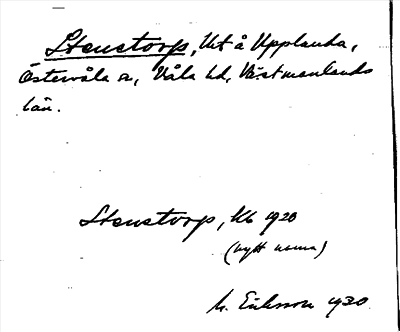 Stenstorp, Ut å Upplanda,
Östervåla sn, Våla hd, Västmanlands
län.
Stenstorp, Kb 1920
(nytt namn)
M. Eriksson 1930.